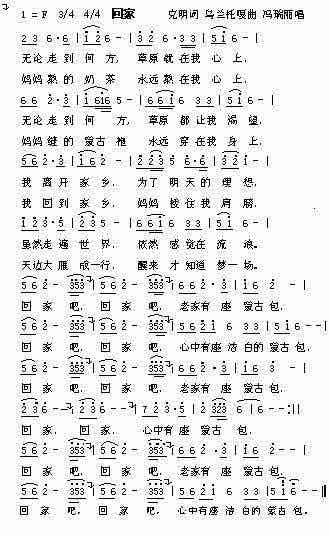 1 = F 3/4 4/4 回家 克明词 乌兰托嘎曲 冯瑞丽唱
2 3 6·6 | 1 2 6 － | 2 2 3·3 | 5 1 6 － |
无论走到何方, 草原就在我心上,
妈妈熬的奶茶 永远熬在我心上,
6 6 2·3 | 1 6 1 6 5 － | 6 6 1 6 3 3 | 5 1 6 － |
无论走到何方, 草原都让我渴望,
妈妈缝的蒙古袍 永远穿在我身上,
5 6 2·3 | 1 6 2 － | 2 2 2 3 5 6·6 | 5 1 6 － |
我离开家乡, 为了明天的理想,
我回到家乡, 妈妈被住我肩膀,
1 2 3·5 | 2 3 5 － | 6 6 1 6 3 3 | 5 1 6 － |
虽然走遍世界, 依然感觉在流浪。
天边大雁成一行, 醒来才知道梦一场。
5 6 2 － | 5 6 2 － 3 5 3 | 5 6 2 3 5 3 | 5 6 2 － － |
回家吧, 回家吧, 老家有座蒙古包,
5 6 2 － | 5 6 2 － 3 5 3 | 5 6 2 1 6 3 3 | 5 1 6 － － |
回家吧, 回家吧, 心中有座洁白的蒙古包,
5 6 2 － 3 5 3 | 5 6 2 － 3 5 3 | 5 6 2 3 5 3 | 5 6 2 － － |
回家吧, 回家吧, 老家有座蒙古包,
2 3 6 － － | 2 3 6 － － | 7 2 3·5 | 2 3 2 3 6 | 6 － － :||
回家, 回家, 心中有座蒙古包,
5 6 2 － 3 5 3 | 5 6 2 － 3 5 3 | 5 6 2 3 5 3 | 5 6 2 － － |
回家吧, 回家吧, 老家有座蒙古包,
5 6 2 － 3 5 3 | 5 6 2 － 3 5 3 | 5 6 2 1 6 3 3 | 5 1 6 － － ||
回家吧, 回家吧, 心中有座洁白的蒙古包,